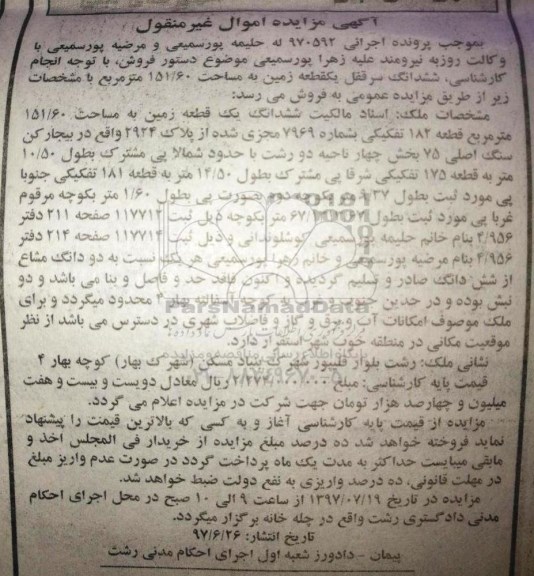 آگهی مزایده اموال غیرمنقول
بموجب پرونده اجرائی ۹۷۰۵۹۲ له حلیمه پورسمیعی و مرضیه پورسمیعی با
وکالت روزبه نیرومند علیه زهرا پورسمیعی موضوع دستور فروش، با توجه انجام
کارشناسی، ششدانگ سرقفل یکقطعه زمین به مساحت ۱۵۱/۶۰ مترمربع با مشخصات
زیر از طریق مزایده عمومی به فروش می رسد:
مشخصات ملک: اسناد مالکیت ششدانگ یک قطعه زمین به مساحت ۱۵۱/۶۰
مترمربع قطعه ۱۸۲ تفکیکی بشماره ۷۹۶۹ مجزی شده از پلاک ۲۹۲۴ واقع در بیجارکن
سنگ اصلی ۷۵ بخش چهار ناحیه دو رشت با حدود شمالا پی مشترک بطول ۱۰/۵۰
متر به قطعه ۱۷۵ تفکیکی شرقا پی مشترک بطول ۱۴/۵۰ متر به قطعه ۱۸۱ تفکیکی جنوبا
پی مورد ثبت بطول دوم بصورت پی بطول ۱/۶۰ متر بکوچه مرقوم
غربا پی مورد ثبت بطول متر بکوچه ذیل ثبت ۱۱۷۷۱۲ صفحه ۲۱۱ دفتر
۲/۹۵۶ بنام خانم حلیمه پورسمیعی و ذیل ثبت ۱۱۷۷۱۴ صفحه ۲۱۴ دفتر
۲/۹۵۶ بنام مرضیه پورسمیعی و خانم زهرا پورسمیعی هر یک نسبت به دو دانگ مشاع
از شش دانگ صادر و تسلیم گردیده و اکنون فاقد حد و فاصل و بنا می باشد و دو
نبش بوده و در حدین جنوب و غرب به کوچه آسفالته بهار ۴ محدود میگردد و برای
ملک موصوف امکانات آب و برق و گاز و فاضلاب شهری در دسترس می باشد از نظر
موقعیت مکانی در منطقه خوب شهر استقرار دارد.
نشانی ملک: رشت بلوار قلیپور شهرک بنیاد مسکن (شهرک بهار) کوچه بهار ۴
قیمت پایه کارشناسی: مبلغ ۲/۲۷۴/۰۰۰/۰۰۰ ریال معادل دویست و بیست و هفت
میلیون و چهارصد هزار تومان جهت شرکت در مزایده اعلام می گردد.
مزایده از قیمت پایه کارشناسی آغاز و به کسی که بالاترین قیمت را پیشنهاد
نماید فروخته خواهد شد ده درصد مبلغ مزایده از خریدار فی المجلس اخذ و
مابقی میبایست حداکثر به مدت یک ماه پرداخت گردد در صورت عدم واریز مبلغ
در مهلت قانونی، ده درصد واریزی به نفع دولت ضبط خواهد شد.
مزایده در تاریخ ۱۳۹۷/۰۷/۱۹ از ساعت ۹ الی ۱۰ صبح در محل اجرای احکام
مدنی دادگستری رشت واقع در چله خانه برگزار میگردد.
تاریخ انتشار: ۹۷/۶/۲۶
پیمان - دادورز شعبه اول اجرای احکام مدنی رشت
ParsNamadData